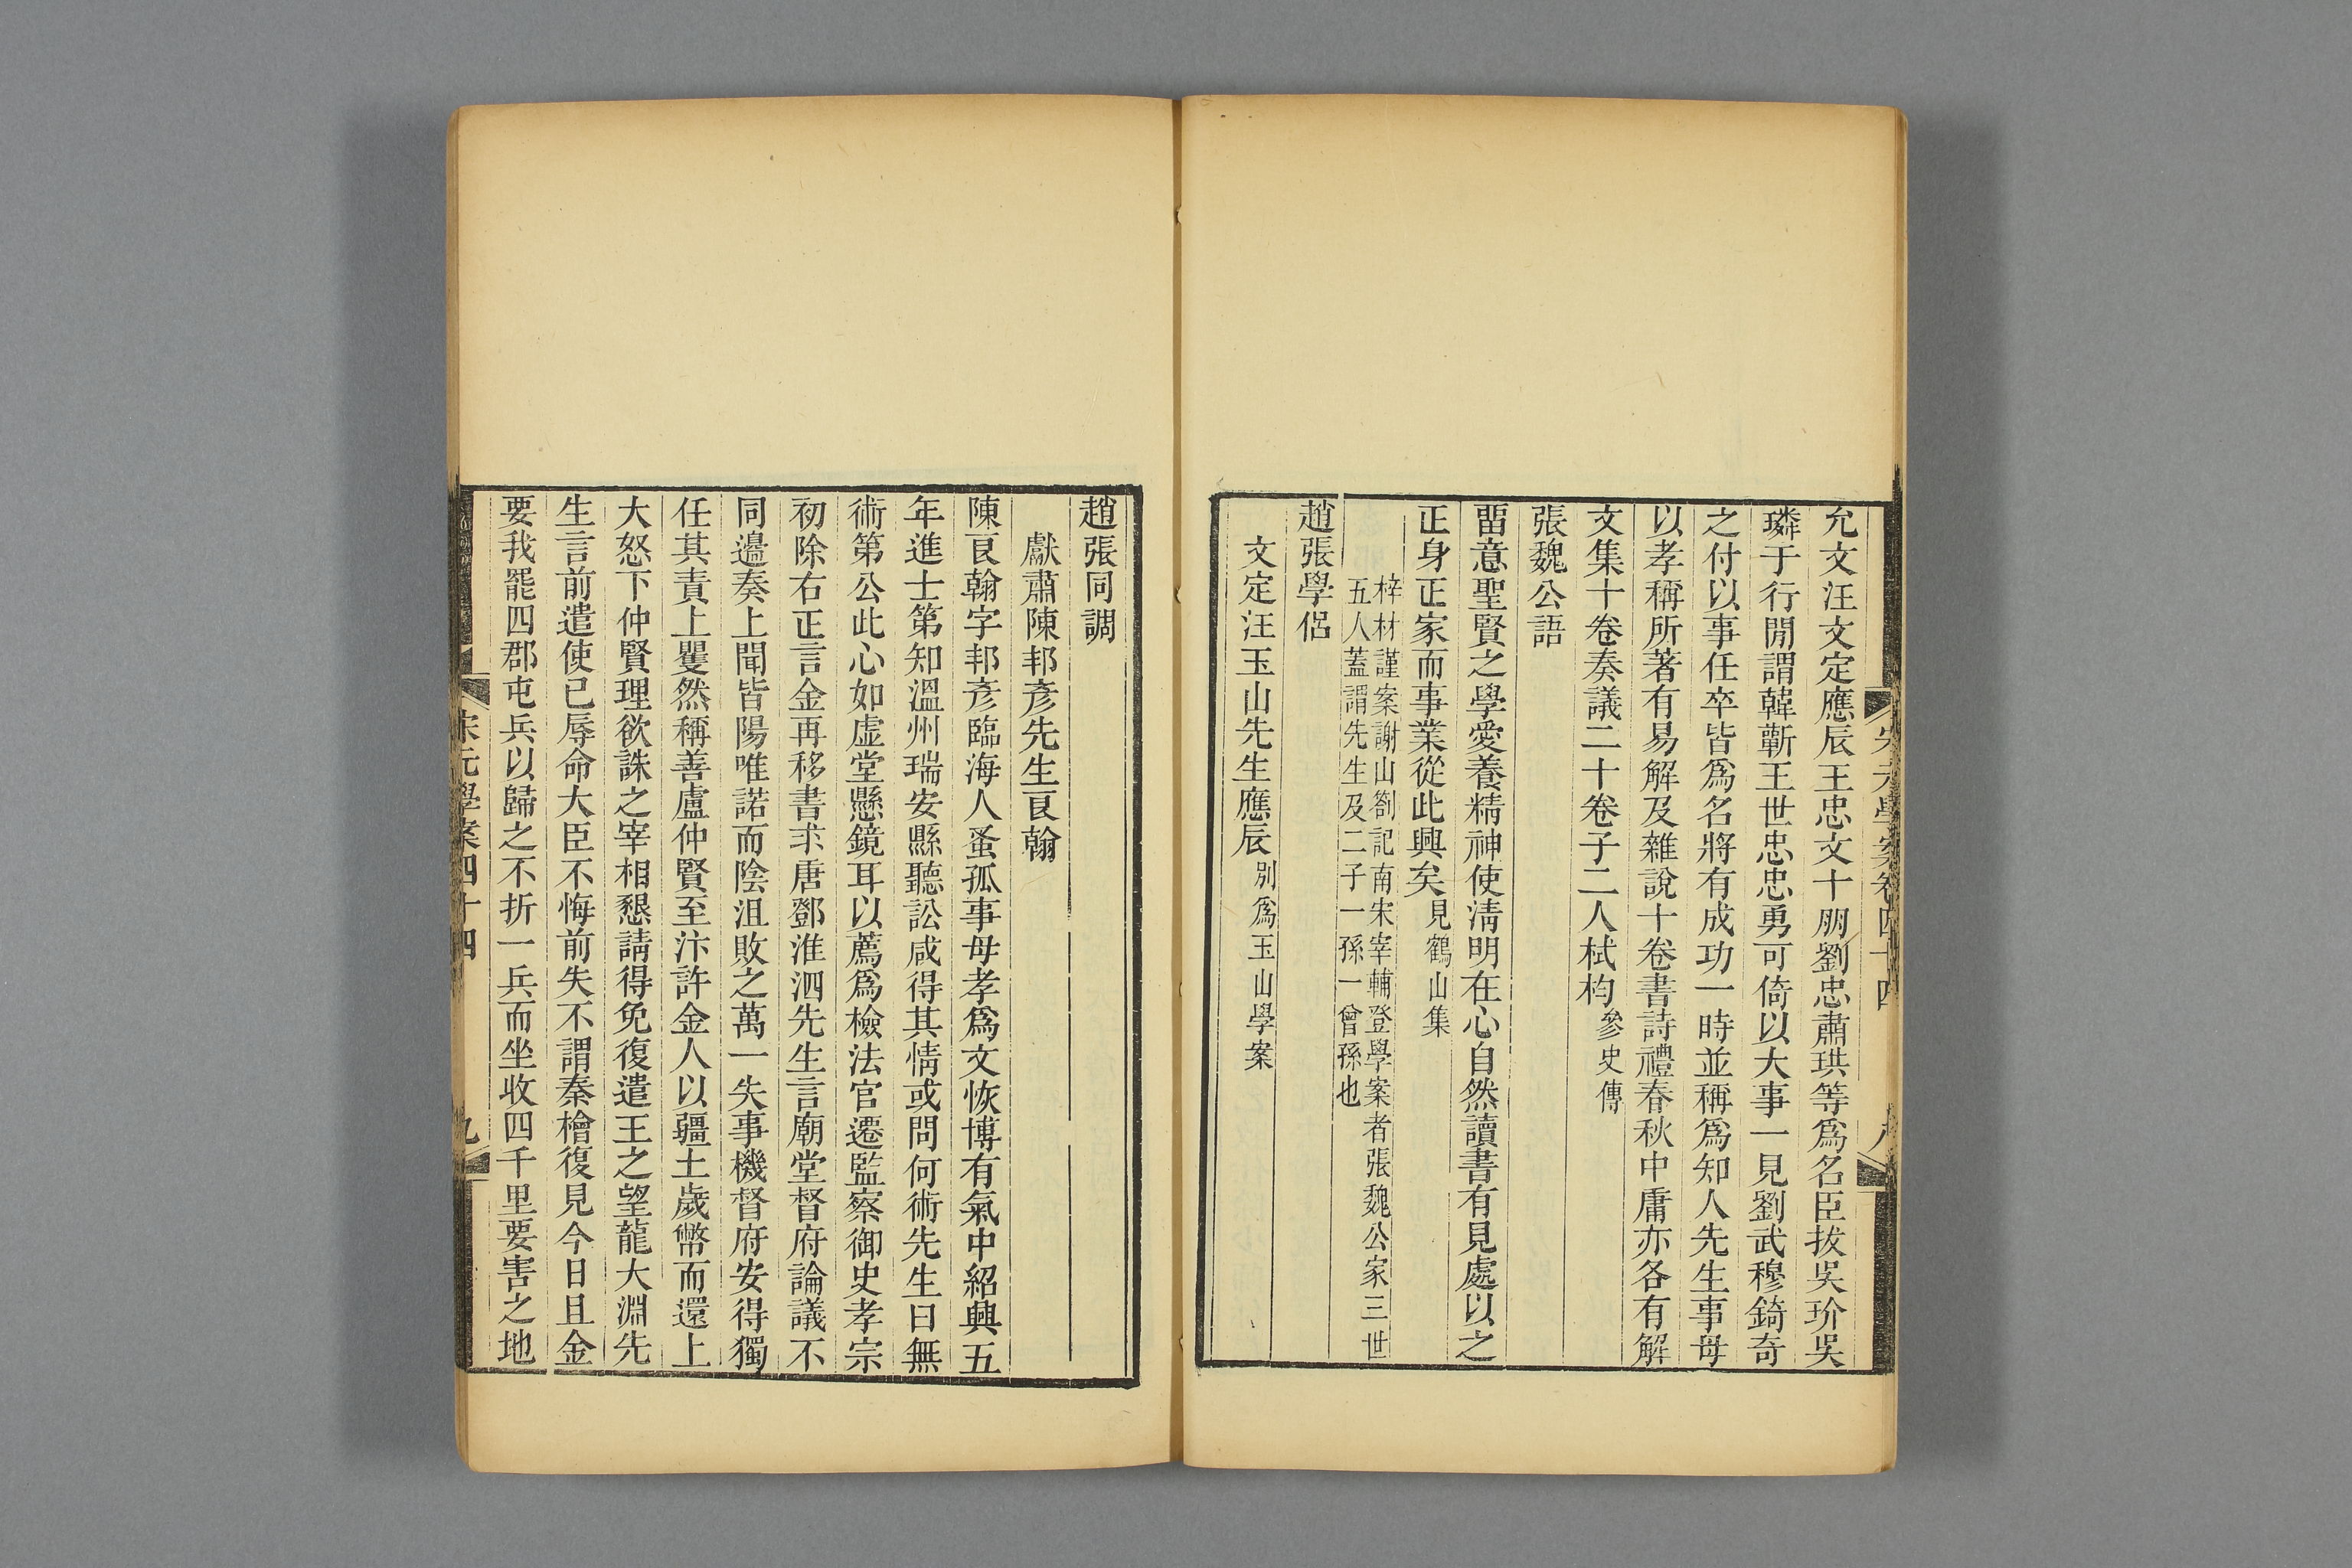 宋元學案卷四十四
八
允文汪文定應辰王忠文十朋劉忠肅珙等爲名臣拔吳玠吳
璘于行閒謂韓蘄王世忠忠勇可倚以大事一見劉武穆錡奇
之付以事任卒皆爲名將有成功一時並稱爲知人先生事母
以孝稱所著有易解及雜說十卷書詩禮春秋中庸亦各有解
文集十卷奏議二十卷子二人栻枃參史傳
張魏公語
畱意聖賢之學愛養精神使清明在心自然讀書有見處以之
正身正家而事業從此興矣見鶴山集
梓材謹案謝山劄記南宋宰輔登學案者張魏公家三世
五人蓋謂先生及二子一孫一曾孫也
趙張學侶
文定汪玉山先生應辰別爲玉山學案
趙張同調
獻肅陳邦彥先生良翰
陳良翰字邦彥臨海人蚤孤事母孝爲文恢博有氣中紹興五
年進士第知溫州瑞安縣聽訟咸得其情或問何術先生曰無
術第公此心如虛堂懸鏡耳以薦爲檢法官遷監察御史孝宗
初除右正言金再移書求唐鄧淮泗先生言廟堂督府論議不
同邊奏上聞皆陽唯諾而陰沮敗之萬一失事機督府安得獨
任其責上矍然稱善盧仲賢至汴許金人以疆土歲幣而還上
大怒下仲賢理欲誅之宰相懇請得免復遣王之望龍大淵先
生言前遣使已辱命大臣不悔前失不謂秦檜復見今日且金
要我罷四郡屯兵以歸之不折一兵而坐收四千里要害之地
宋元學案四十四
九